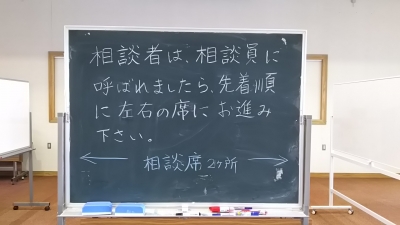 相談者は、相談員に
呼ばれましたら、先着順
に左右の席にお進み
下さい。
← 相談席 2ヶ所 →